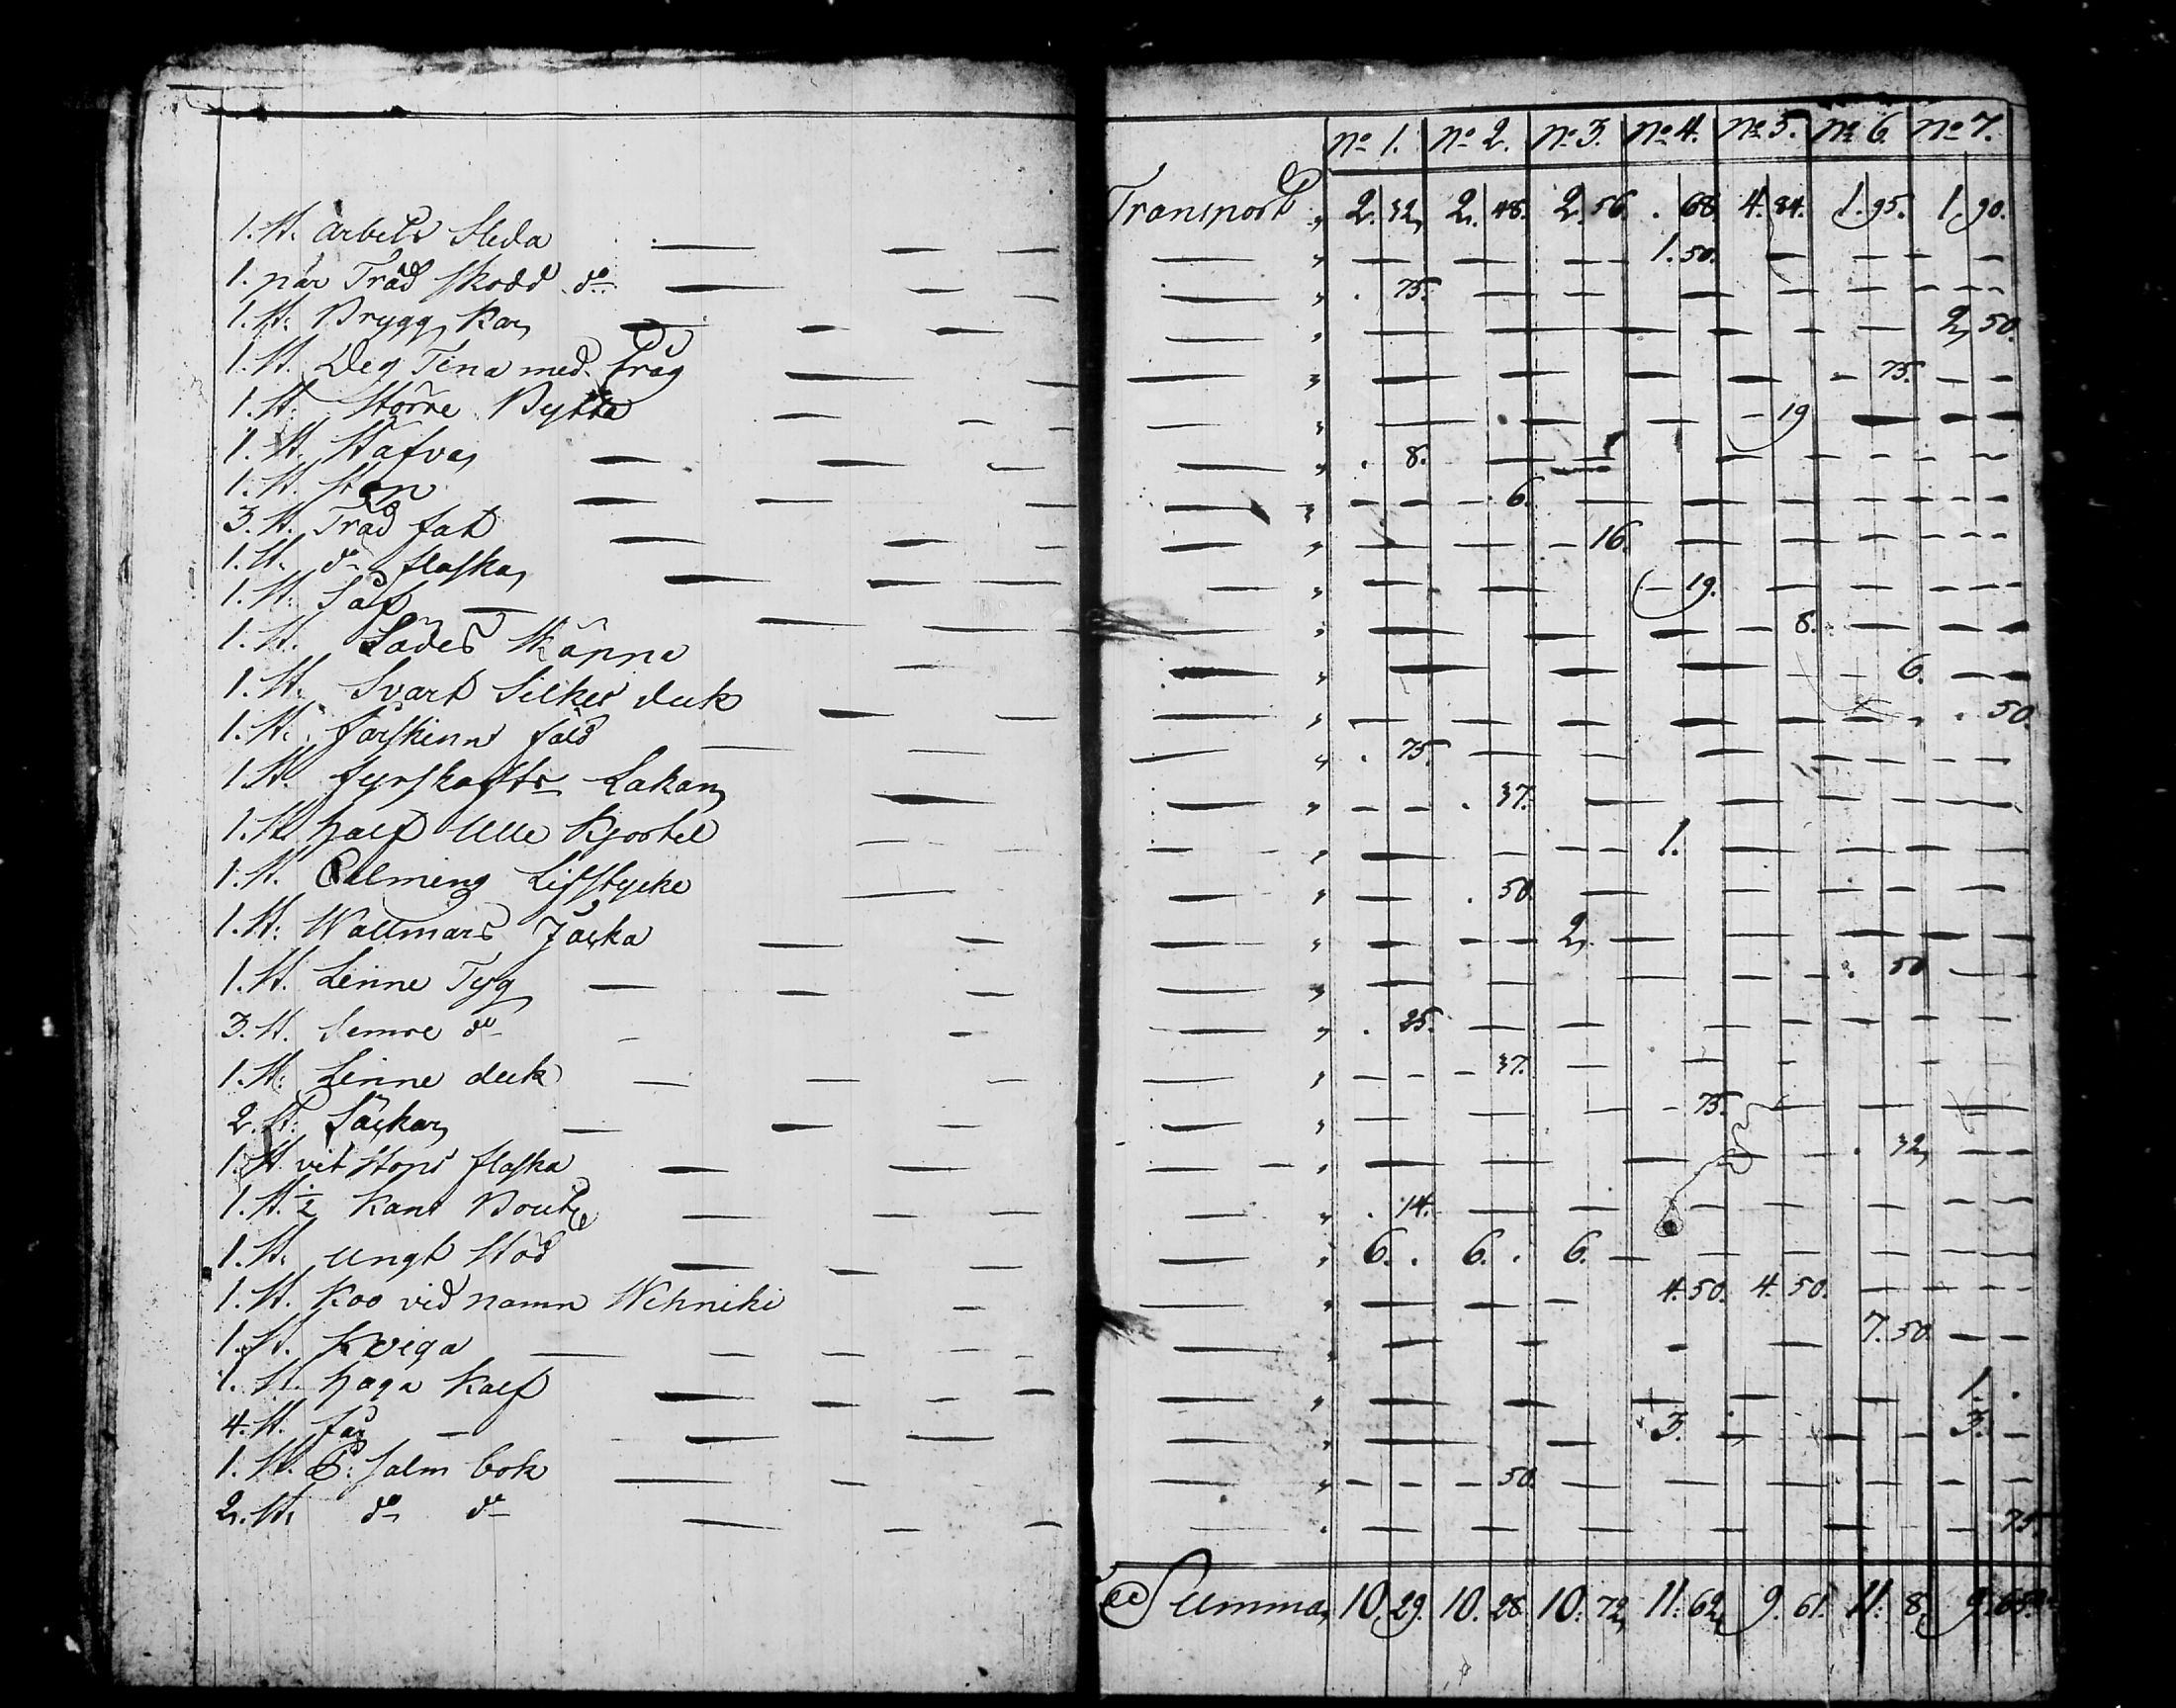 No 1. No 2. No 3. No 4. No 5. No 6. No 7.
Transport 2. 32, 2. 48. 2. 56. . 68 4. 84. 1. 95. 1. 90.
1. St. arbets Sleda 1. 50.
1. par Träd skodd do . 75.
1. St. Brygg Kar, 2, 50.
1. St. Deg Tina med tråg 75.
1. St. Större Bytta 19
1. St. Häfva, . 8.
1. St. 6.
3. St. Träd fat 16.
1. St. do flaska, 19.
1. St. Såg 8.
1. St. Sädes Skäppa 6.
1. St. Svart Silkes duk . . 50
1. St. fårskinns fäld . 75.
1. St. fyrskafts Lakan, . 37.
1. St. half Ulle Kjortel 1.
1. St. Calming Lifstycke . 50.
1. St. Wallmars Jacka 2,
1. St. Linne Tyg . 50
3. St. Semre do . 25.
1. St. Linne duk 37.
2. St. Säckar, 75.
1. St. vit Stens flaska . 32,
1. St. ½ Kans Boutl . 14.
1. St. ungt Stod 6. . 6. . 6.
1. St. Koo vid namn Wehniki 4. 50. 4. 50.
1. St. Kviga 7. 50
1. St. haga Kalf 1. .
4. St. får 3. 3.
1. St. P: salm bok 50.
2. St. do do 75.
Summa, 10. 29. 10. 28 10. 72, 11. 62, 9. 61. 11. 8, 9. 65.